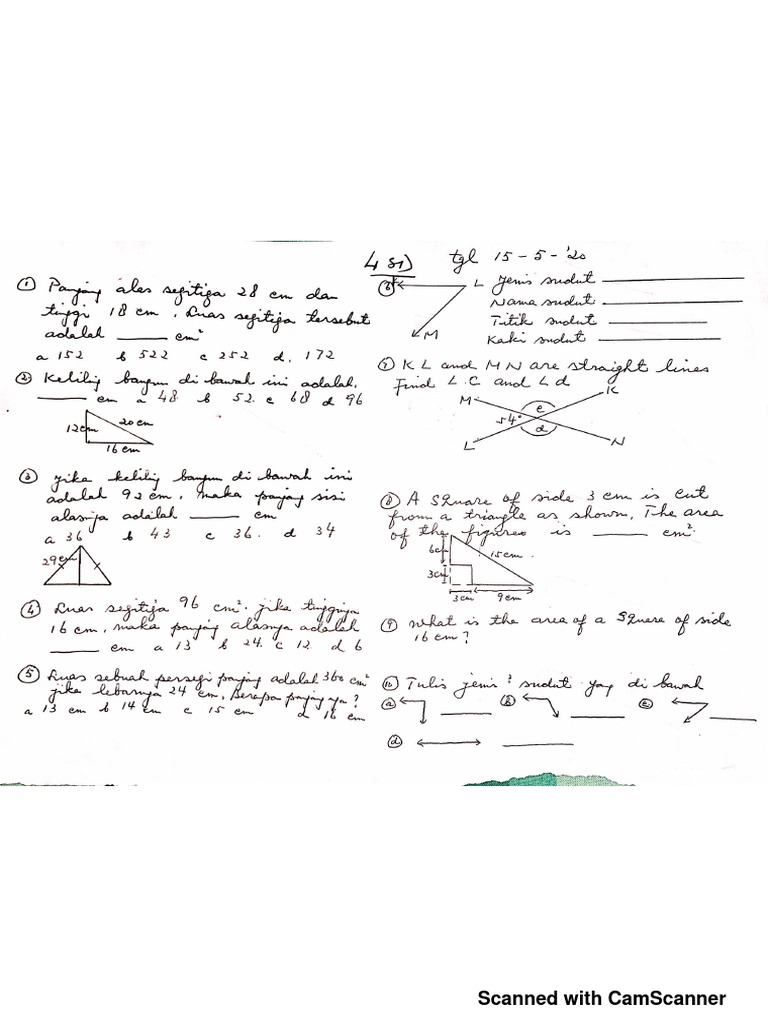 4 SD tgl 15-5-'20
① Panjang alas segitiga 28 cm dan
tinggi 18 cm, Luas segitiga tersebut
adalah ____ cm²
a 152 b 522 c 252 d. 172
② Keliling bangun di bawah ini adalah.
____ cm a 48 b 52. c 68 d 96
12cm 20cm
16cm
③ jika keliling bangun di bawah ini
adalah 92 cm, maka panjang sisi
alasnya adalah ____ cm
a 36 b 43 c 36. d 34
29cm
④ Luas segitiga 96 cm². jika tingginya
16 cm, maka panjang alasnya adalah
____ cm a 13 b 24. c 12. d 6
⑤ Luas sebuah persegi panjang adalah 360 cm²
jika lebarnya 24 cm, Berapa panjang nya?
a 13 cm b 14 cm c 15 cm d 16 cm
⑥ K L Jenis sudut ____
Nama sudut ____
Titik sudut ____
M Kaki sudut ____
⑦ KL and MN are straight lines
Find ∠C and ∠d
M K
54° c
d
L N
⑧ A square of side 3 cm is cut
from a triangle as shown. The area
of the figures is ____ cm².
6cm 15cm.
3cm
3cm 9cm
⑨ What is the area of a square of side
16 cm?
⑩ Tulis jenis² sudut yang di bawah
ⓐ ____ ⓑ ____ ⓒ ____
ⓓ ____
Scanned with CamScanner